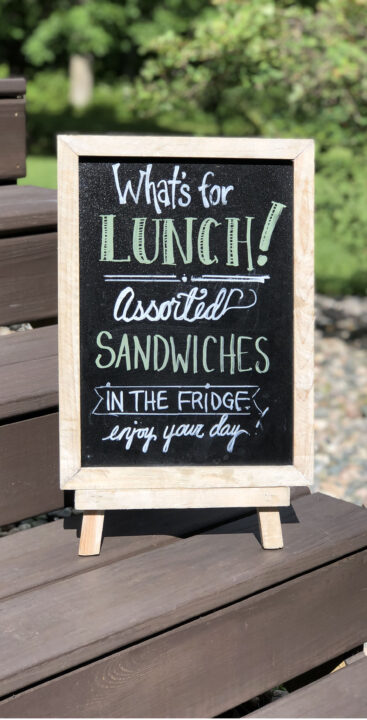 What's for
LUNCH!
Assorted
SANDWICHES
IN THE FRIDGE
enjoy your day!